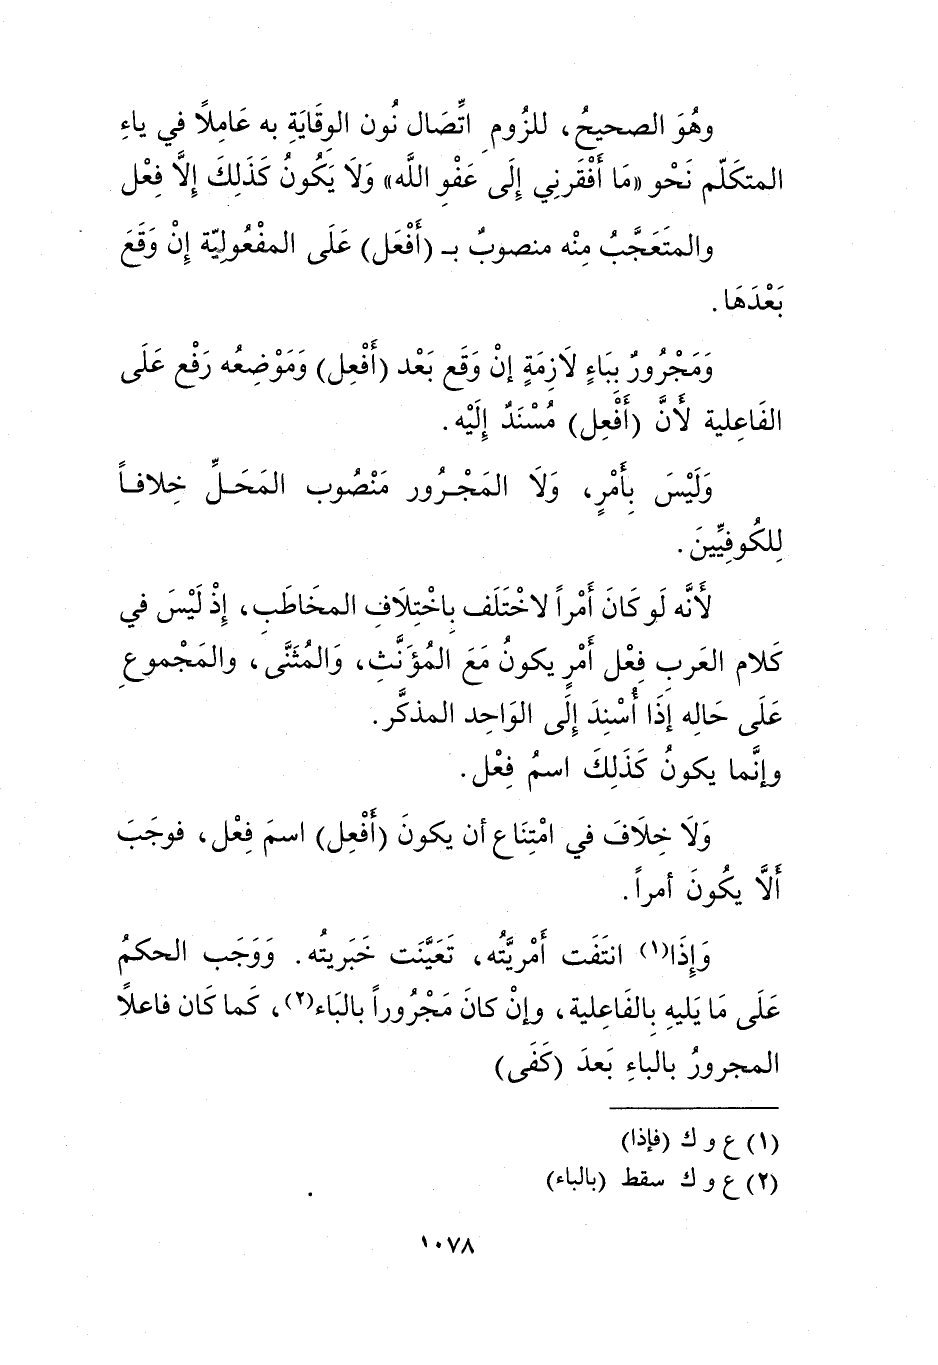 وهُوَ الصحيحُ، للزُومِ اتِّصَال نُون الوِقَايَةِ به عَامِلًا في ياءِ
المتكَلّم نَحْو «مَا أَفْقَرنِي إِلَى عَفْوِ اللَّه» وَلَا يَكُونُ كَذَلِكَ إِلَّا فِعْل
والمتَعَجَّبُ مِنْه منصوبٌ بـ (أَفْعَل) عَلَى المفْعُولِيّة إِنْ وَقَعَ
بَعْدَهَا.
وَمَجْرُورٌ بِبَاءٍ لَازِمَةٍ إنْ وَقَع بَعْد (أَفْعِل) وَمَوْضِعُه رَفْع عَلَى
الفَاعِلية لأَنَّ (أَفْعِل) مُسْنَدٌ إِلَيْه.
وَلَيْسَ بِأَمْرٍ، وَلَا المَجْـرُور مَنْصُوب المَحَـلِّ خِلافـاً
لِلكُوفِيِّينَ.
لأَنَّه لَو كَانَ أَمْراً لاخْتَلَف بِاخْتِلَافِ المخَاطَبِ، إِذْ لَيْسَ في
كَلام العَربِ فِعْل أَمْرٍ يكونُ مَعَ المُؤَنَّثِ، وَالمُثَنَّى، والمَجْموعِ
عَلَى حَالِه إذَا أُسْنِدَ إِلَى الوَاحِد المذكَّر.
وإنَّما يكونُ كَذَلِكَ اسمُ فِعْل.
وَلَا خِلَافَ في امْتِنَاع أن يكونَ (أَفْعِل) اسمَ فِعْل، فوجَبَ
أَلَّا يكُونَ أمراً.
وَإِذَا(١) انتَفَت أَمْرِيَّتُه، تَعَيَّنَت خَبَريتُه. وَوَجَب الحكمُ
عَلَى مَا يَليهِ بِالفَاعِلية، وإنْ كانَ مَجْرُوراً بالبَاء(٢)، كَما كَان فاعلًا
المجرورُ بالباءِ بَعدَ (كَفَى)
(١) ع و ك (فإذا)
(٢) ع و ك سقط (بالباء)
١٠٧٨